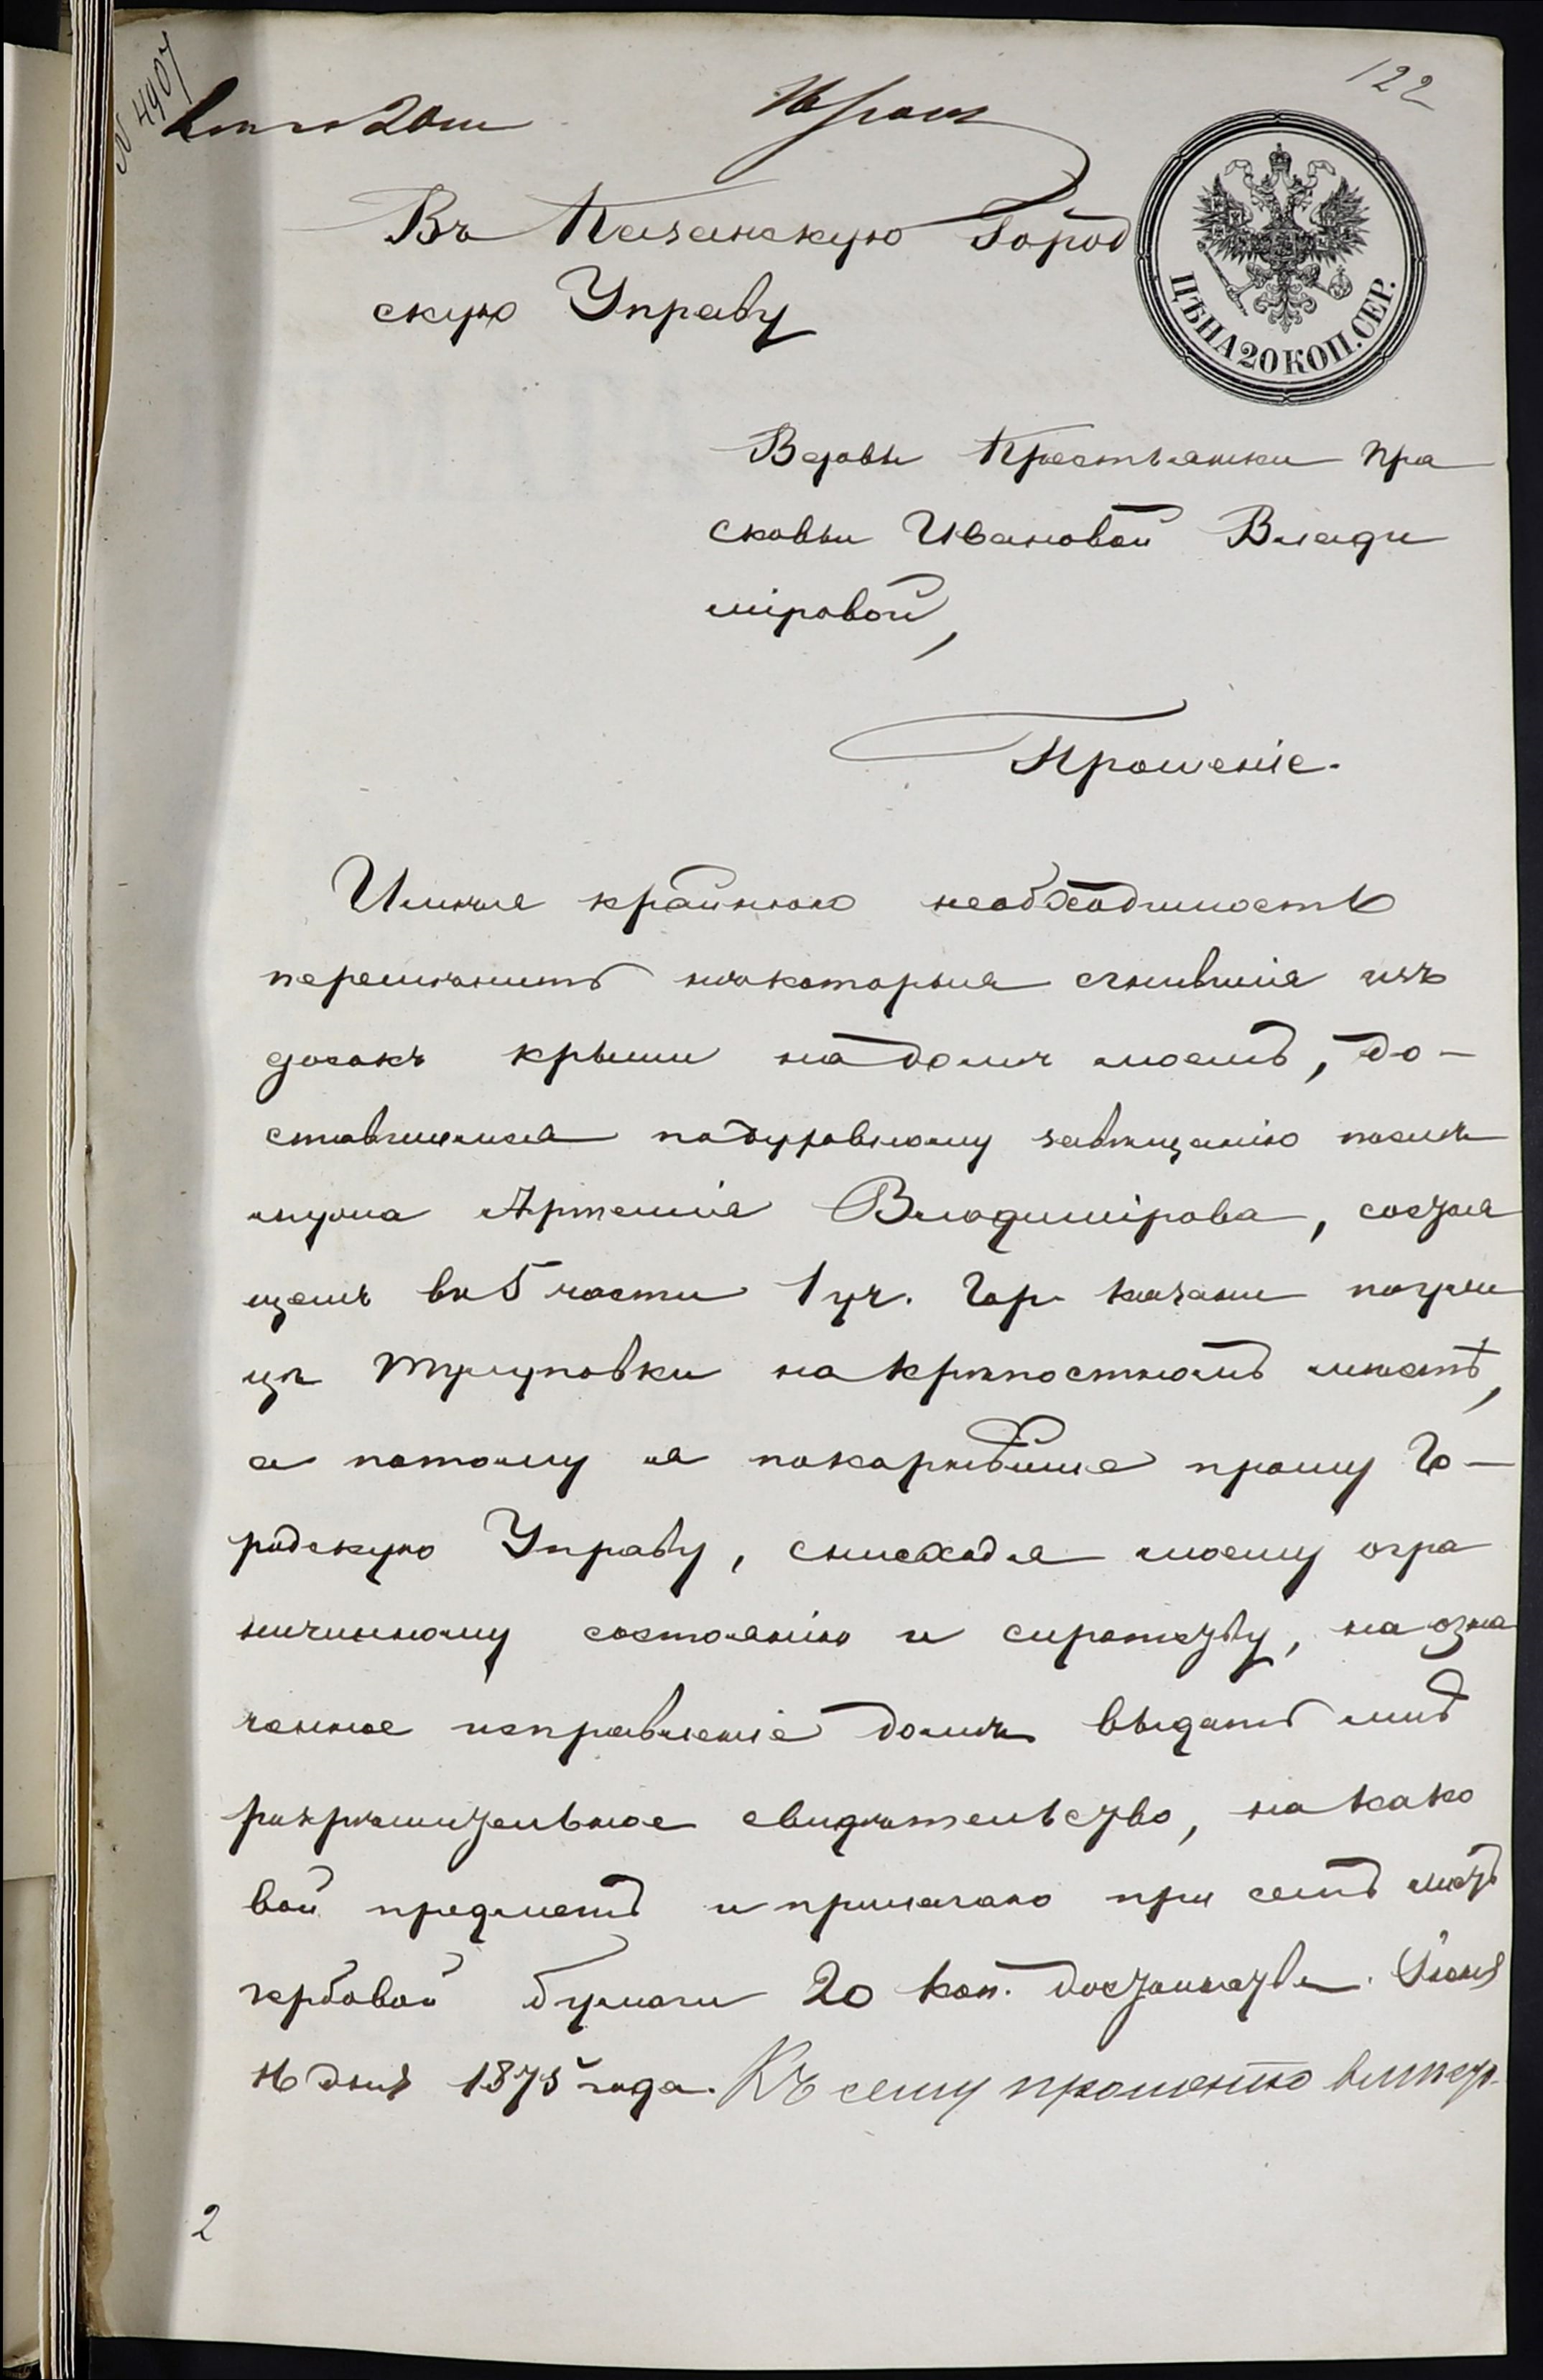 122
№ 4907
Въ Казанскую Город
скую Управу
ЦѢНА 20 КОП. СЕР.
Вдовы Крестьянки Пра
сковьи Ивановой Влади
міровой,
Прошеніе.
Имѣя крайнюю необходимость
перемѣнить нѣкоторыя сгнившія изъ
досокъ крыши на домѣ моемъ, до-
ставшемся по духовному завѣщанію послѣ
мужа Артемія Владимірова, состоя
щемъ въ 5 части 1 уч. гор. Казани по ули
цѣ на крѣпостномъ мѣстѣ,
а потому я покорнѣйше прошу Го-
родскую Управу, снисходя моему огра
ниченному состоянію и сиротству, на озна
ченное исправленіе дома выдать мнѣ
разрѣшительное свидѣтельство, на како
вой предметъ и прилагаю при семъ листъ
гербовой бумаги 20 коп. достоинства. Іюня
16 дня 1875 года. Къ сему прошенію вмѣсто
2